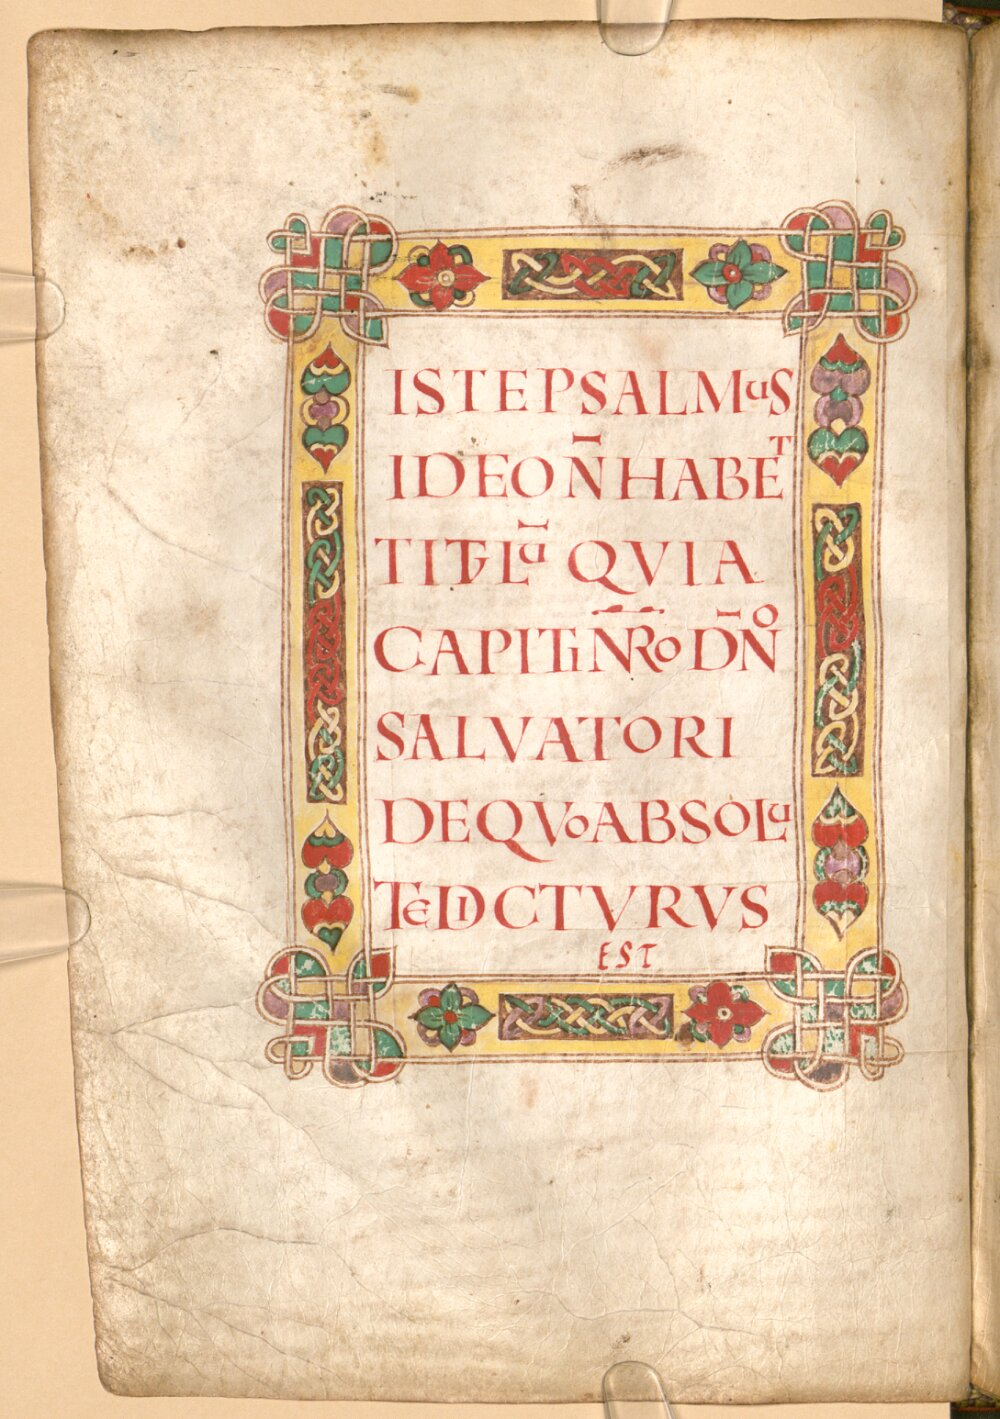 ISTE PSALMuS
IDEO N̄ HABET
TITuLū QVIA
CAPITI N̄RO DN̄O
SALVATORI
DE QVO ABSOLu
TE DICTVRVS
EST